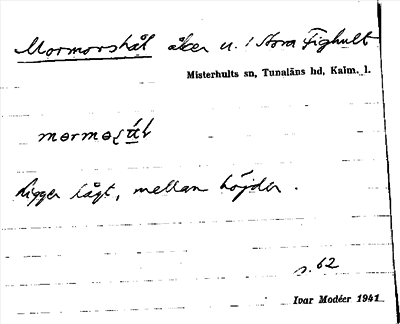 Mormorshål åker n. i Stora Fighult
Misterhults sn, Tunaläns hd, Kalm. l.
Ligger lågt, mellan höjder.
s. 62
Ivar Modéer 1941